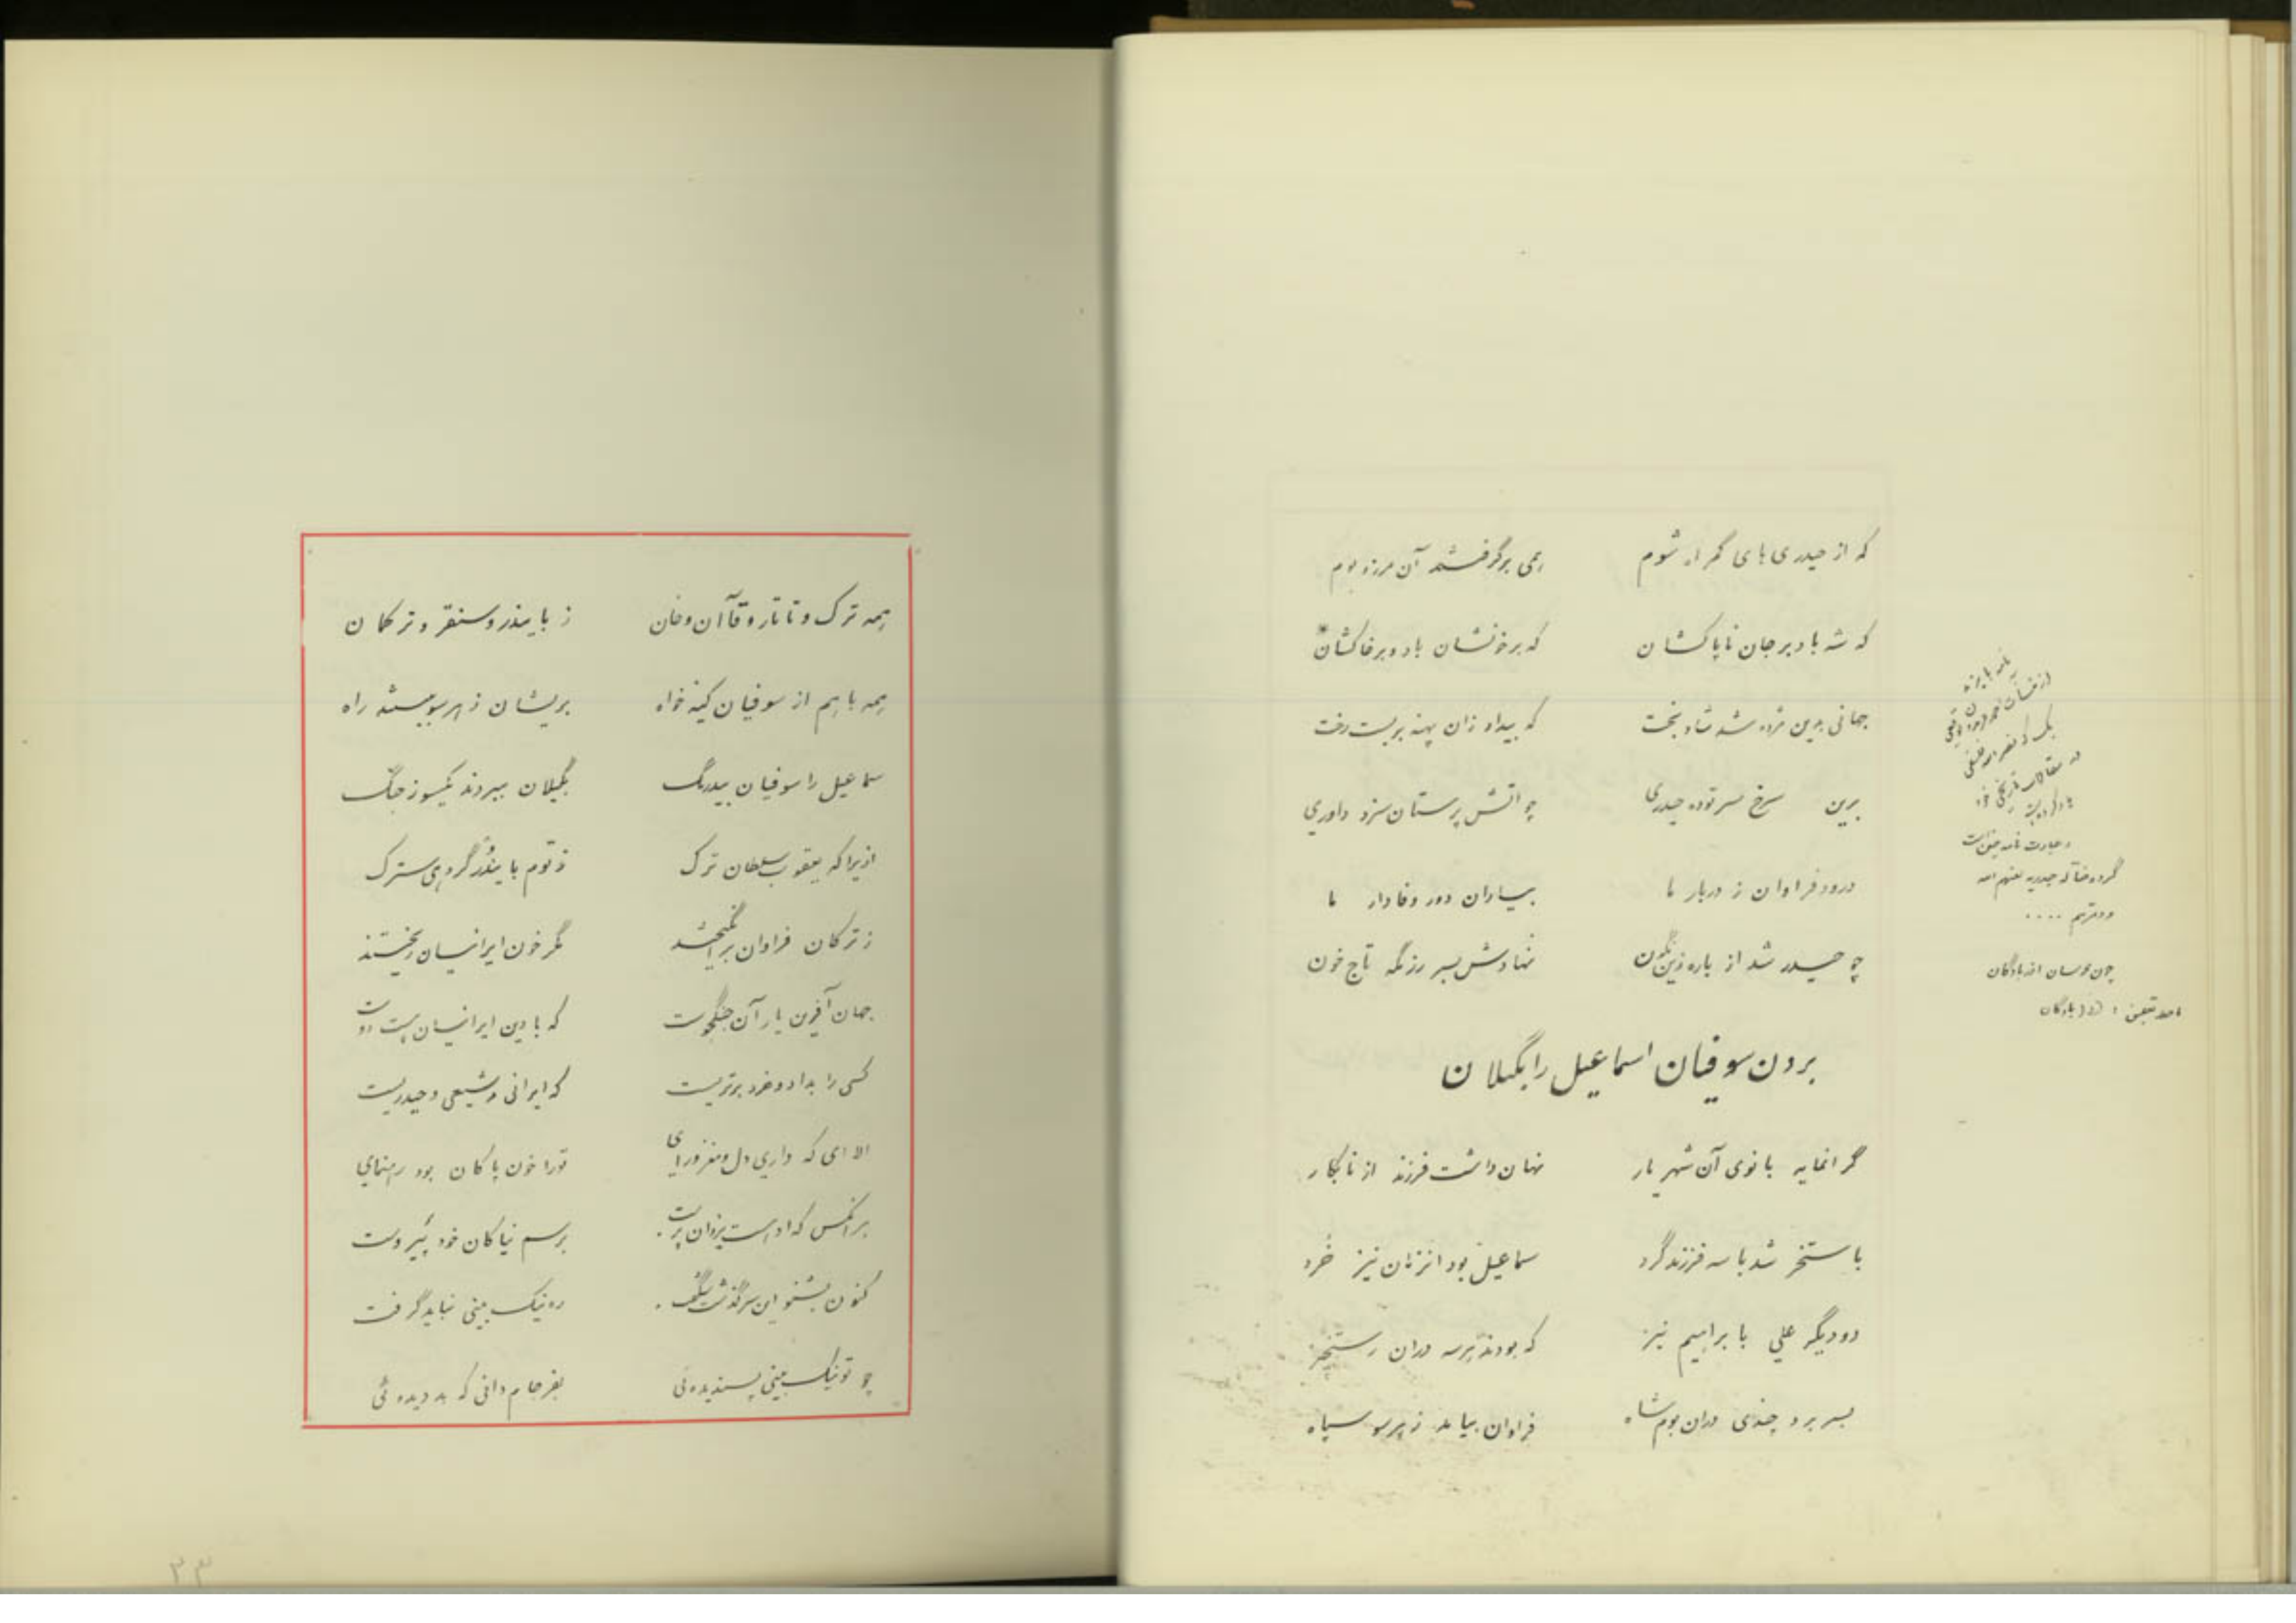 که از حیدری های گمراه شوم    همی برگرفتند آن مرز و بوم
که شه باد بر جان ناپاکشان    که بر خونشان باد و بر خاکشان*
جهانی بدین مژده شد شاد بخت    که بیداد زان پهنه بربست رخت
برین سرخ سر توده حیدری    چو آتش پرستان سزد داوری
درود فراوان ز دربار ما    بیاران دور وفادار ما
چو حیدر شد از باره زین نگون    نهادش بسر رزمگه تاج خون
بردن سوفیان اسماعیل را بگیلان
گرانمایه بانوی آن شهریار    نهان داشت فرزند از نابکار
باستخر شد با سه فرزند گرد    سماعیل بود اندر آن نیز خُرد
دو دیگر علی با براهیم نیز    که بودند هر سه در آن رستخیز
بسر برد چندی در آن بوم شاه    فراوان بیامد ز هر سو سپاه
در مقالات تاریخی خود
و عبارت نامه چنین است
گروه ضاله حیدریه لعنهم الله
و دمرهم ....
همه ترک و تاتار و قاآن و خان    ز بایندر و سنقر و ترکمان
همه با هم از سوفیان کینه خواه    بریشان ز هر سو ببسته راه
سماعیل را سوفیان بیدرنگ    بگیلان ببردند یکسو ز جنگ
ازیرا که یعقوب سلطان ترک    ز قوم بایندُر گردی سترک
ز ترکان فراوان برانگیختند    مگر خون ایرانیان ریختند
جهان آفرین یار آن جنگجوست    که با دین ایرانیان هست دوست
کسی را بداد و خرد برتریست    که ایرانی و شیعی و حیدریست
الا ای که داری دل و مغز و رای    تو را خون پاکان بود رهنمای
هر آنکس که او هست یزدان پرست    برسم نیاکان خود پیروست
کنون بشنو این سرگذشت شگفت    ره نیک بینی نباید گرفت
چو تو نیک بینی پسندیده ئی    بفرجام دانی که بد دیده ئی
۳۳